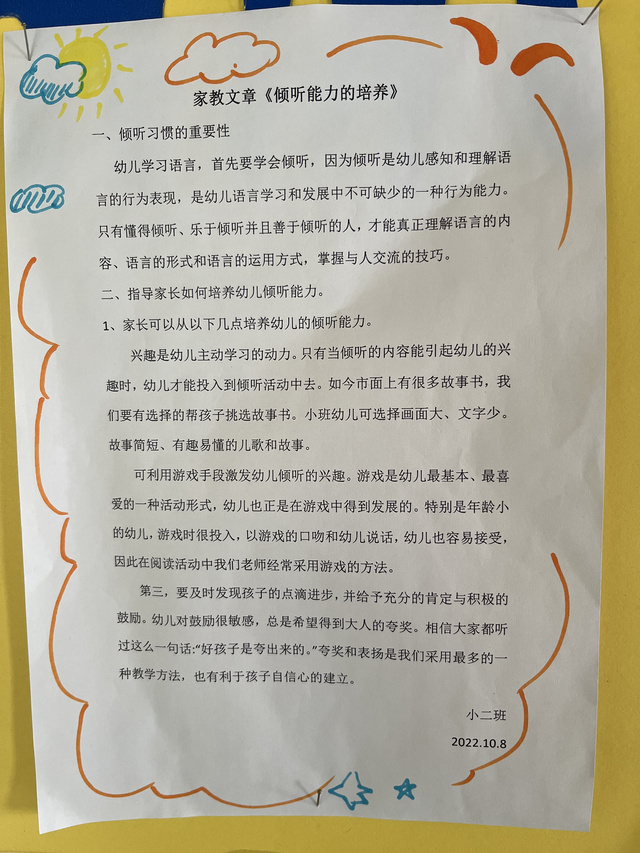 家教文章《倾听能力的培养》
一、倾听习惯的重要性
幼儿学习语言，首先要学会倾听，因为倾听是幼儿感知和理解语
言的行为表现，是幼儿语言学习和发展中不可缺少的一种行为能力。
只有懂得倾听、乐于倾听并且善于倾听的人，才能真正理解语言的内
容、语言的形式和语言的运用方式，掌握与人交流的技巧。
二、指导家长如何培养幼儿倾听能力。
1、家长可以从以下几点培养幼儿的倾听能力。
兴趣是幼儿主动学习的动力。只有当倾听的内容能引起幼儿的兴
趣时，幼儿才能投入到倾听活动中去。如今市面上有很多故事书，我
们要有选择的帮孩子挑选故事书。小班幼儿可选择画面大、文字少。
故事简短、有趣易懂的儿歌和故事。
可利用游戏手段激发幼儿倾听的兴趣。游戏是幼儿最基本、最喜
爱的一种活动形式，幼儿也正是在游戏中得到发展的。特别是年龄小
的幼儿，游戏时很投入，以游戏的口吻和幼儿说话，幼儿也容易接受，
因此在阅读活动中我们老师经常采用游戏的方法。
第三，要及时发现孩子的点滴进步，并给予充分的肯定与积极的
鼓励。幼儿对鼓励很敏感，总是希望得到大人的夸奖。相信大家都听
过这么一句话:“好孩子是夸出来的。”夸奖和表扬是我们采用最多的一
种教学方法，也有利于孩子自信心的建立。
小二班
2022.10.8